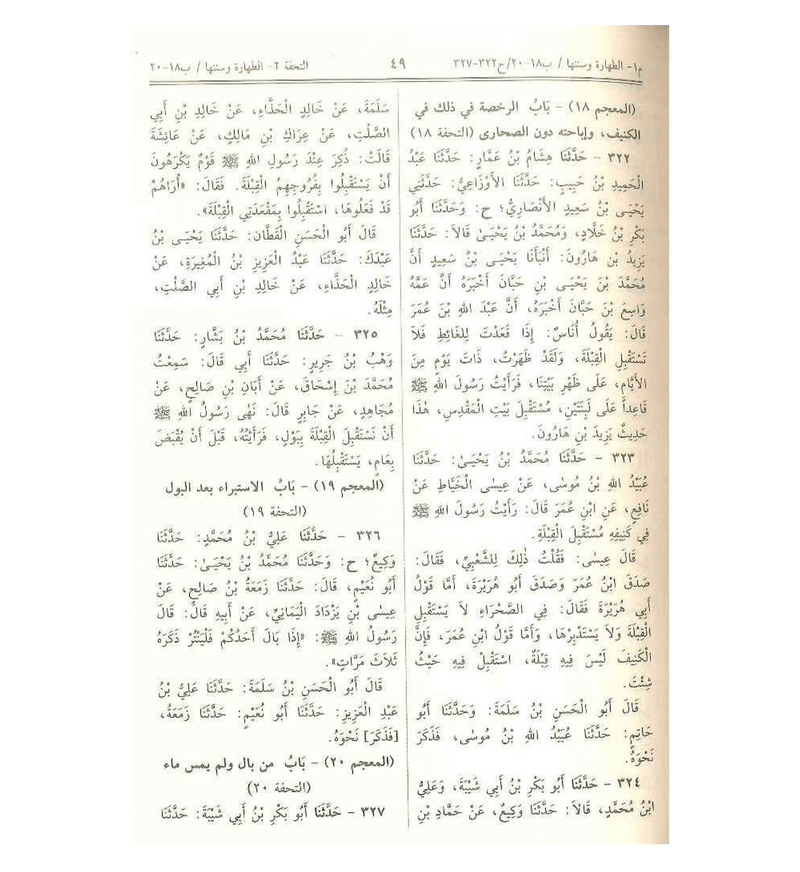 م١- الطهارة وسننها / ب١٨-٢٠/ح٣٢٢-٣٢٧
٤٩
التحفة ٢- الطهارة وسننها / ب١٨-٢٠
(المعجم ١٨) - بَابُ الرخصة في ذلك في
الكنيف، وإباحته دون الصحارى (التحفة ١٨)
٣٢٢ - حَدَّثَنَا هِشَامُ بْنُ عَمَّارٍ: حَدَّثَنَا عَبْدُ
الْحَمِيدِ بْنُ حَبِيبٍ: حَدَّثَنَا الأَوْزَاعِيُّ: حَدَّثَنِي
يَحْيَى بْنُ سَعِيدٍ الأَنْصَارِيُّ؛ ح: وَحَدَّثَنَا أَبُو
بَكْرِ بْنُ خَلَّادٍ، وَمُحَمَّدُ بْنُ يَحْيَىٰ قَالاَ: حَدَّثَنَا
يَزِيدُ بْنُ هَارُونَ: أَنْبَأَنَا يَحْيَىٰ بْنُ سَعِيدٍ أَنَّ
مُحَمَّدَ بْنَ يَحْيَىٰ بْنِ حَبَّانَ أَخْبَرَهُ أَنَّ عَمَّهُ
وَاسِعَ بْنَ حَبَّانَ أَخْبَرَهُ، أَنَّ عَبْدَ اللهِ بْنَ عُمَرَ
قَالَ: يَقُولُ أُنَاسٌ: إِذَا قَعَدْتَ لِلْغَائِطِ فَلاَ
تَسْتَقْبِلِ الْقِبْلَةَ، وَلَقَدْ ظَهَرْتُ، ذَاتَ يَوْمٍ مِنَ
الأَيَّامِ، عَلَى ظَهْرِ بَيْتِنَا، فَرَأَيْتُ رَسُولَ اللهِ ﷺ
قَاعِداً عَلَى لَبِنَتَيْنِ، مُسْتَقْبِلَ بَيْتِ الْمَقْدِسِ، هٰذَا
حَدِيثُ يَزِيدَ بْنِ هَارُونَ.
٣٢٣ - حَدَّثَنَا مُحَمَّدُ بْنُ يَحْيَىٰ: حَدَّثَنَا
عُبَيْدُ اللهِ بْنُ مُوسَى، عَنْ عِيسَى الْخَيَّاطِ عَنْ
نَافِعٍ، عَنِ ابْنِ عُمَرَ قَالَ: رَأَيْتُ رَسُولَ اللهِ ﷺ
فِي كَنِيفِهِ مُسْتَقْبِلَ الْقِبْلَةِ.
قَالَ عِيسَى: فَقُلْتُ ذٰلِكَ لِلشَّعْبِيِّ، فَقَالَ:
صَدَقَ ابْنُ عُمَرَ وَصَدَقَ أَبُو هُرَيْرَةَ، أَمَّا قَوْلُ
أَبِي هُرَيْرَةَ فَقَالَ: فِي الصَّحْرَاءِ لاَ يَسْتَقْبِلِ
الْقِبْلَةَ وَلاَ يَسْتَدْبِرْهَا، وَأَمَّا قَوْلُ ابْنِ عُمَرَ، فَإِنَّ
الْكَنِيفَ لَيْسَ فِيهِ قِبْلَةٌ، اسْتَقْبِلْ فِيهِ حَيْثُ
شِئْتَ.
قَالَ أَبُو الْحَسَنِ بْنُ سَلَمَةَ: وَحَدَّثَنَا أَبُو
حَاتِمٍ: حَدَّثَنَا عُبَيْدُ اللهِ بْنُ مُوسَى، فَذَكَرَ
نَحْوَهُ.
٣٢٤ - حَدَّثَنَا أَبُو بَكْرِ بْنُ أَبِي شَيْبَةَ، وَعَلِيُّ
ابْنُ مُحَمَّدٍ، قَالاَ: حَدَّثَنَا وَكِيعٌ، عَنْ حَمَّادِ بْنِ
سَلَمَةَ، عَنْ خَالِدٍ الْحَذَّاءِ، عَنْ خَالِدِ بْنِ أَبِي
الصَّلْتِ، عَنْ عِرَاكِ بْنِ مَالِكٍ، عَنْ عَائِشَةَ
قَالَتْ: ذُكِرَ عِنْدَ رَسُولِ اللهِ ﷺ قَوْمٌ يَكْرَهُونَ
أَنْ يَسْتَقْبِلُوا بِفُرُوجِهِمُ الْقِبْلَةَ. فَقَالَ: «أُرَاهُمْ
قَدْ فَعَلُوهَا، اسْتَقْبِلُوا بِمَقْعَدَتِي الْقِبْلَةَ».
قَالَ أَبُو الْحَسَنِ الْقَطَّان: حَدَّثَنَا يَحْيَى بْنُ
عَبْدَكَ: حَدَّثَنَا عَبْدُ الْعَزِيزِ بْنُ الْمُغِيرَةِ، عَنْ
خَالِدٍ الْحَذَّاءِ، عَنْ خَالِدِ بْنِ أَبِي الصَّلْتِ،
مِثْلَهُ.
٣٢٥ - حَدَّثَنَا مُحَمَّدُ بْنُ بَشَّارٍ: حَدَّثَنَا
وَهْبُ بْنُ جَرِيرٍ: حَدَّثَنَا أَبِي قَالَ: سَمِعْتُ
مُحَمَّدَ بْنَ إِسْحَاقَ، عَنْ أَبَانِ بْنِ صَالِحٍ، عَنْ
مُجَاهِدٍ، عَنْ جَابِرٍ قَالَ: نَهَى رَسُولُ اللهِ ﷺ
أَنْ نَسْتَقْبِلَ الْقِبْلَةَ بِبَوْلٍ، فَرَأَيْتُهُ، قَبْلَ أَنْ يُقْبَضَ
بِعَامٍ، يَسْتَقْبِلُهَا.
(المعجم ١٩) - بَابُ الاستبراء بعد البول
(التحفة ١٩)
٣٢٦ - حَدَّثَنَا عَلِيُّ بْنُ مُحَمَّدٍ: حَدَّثَنَا
وَكِيعٌ؛ ح: وَحَدَّثَنَا مُحَمَّدُ بْنُ يَحْيَىٰ: حَدَّثَنَا
أَبُو نُعَيْمٍ، قَالَ: حَدَّثَنَا زَمْعَةُ بْنُ صَالِحٍ، عَنْ
عِيسَى بْنِ يَزْدَادَ الْيَمَانِيِّ، عَنْ أَبِيهِ قَالَ: قَالَ
رَسُولُ اللهِ ﷺ: «إِذَا بَالَ أَحَدُكُمْ فَلْيَنْتُرْ ذَكَرَهُ
ثَلاَثَ مَرَّاتٍ».
قَالَ أَبُو الْحَسَنِ بْنُ سَلَمَةَ: حَدَّثَنَا عَلِيُّ بْنُ
عَبْدِ الْعَزِيزِ: حَدَّثَنَا أَبُو نُعَيْمٍ: حَدَّثَنَا زَمْعَةُ،
[فَذَكَرَ] نَحْوَهُ.
(المعجم ٢٠) - بَابُ من بال ولم يمس ماء
(التحفة ٢٠)
٣٢٧ - حَدَّثَنَا أَبُو بَكْرِ بْنُ أَبِي شَيْبَةَ: حَدَّثَنَا